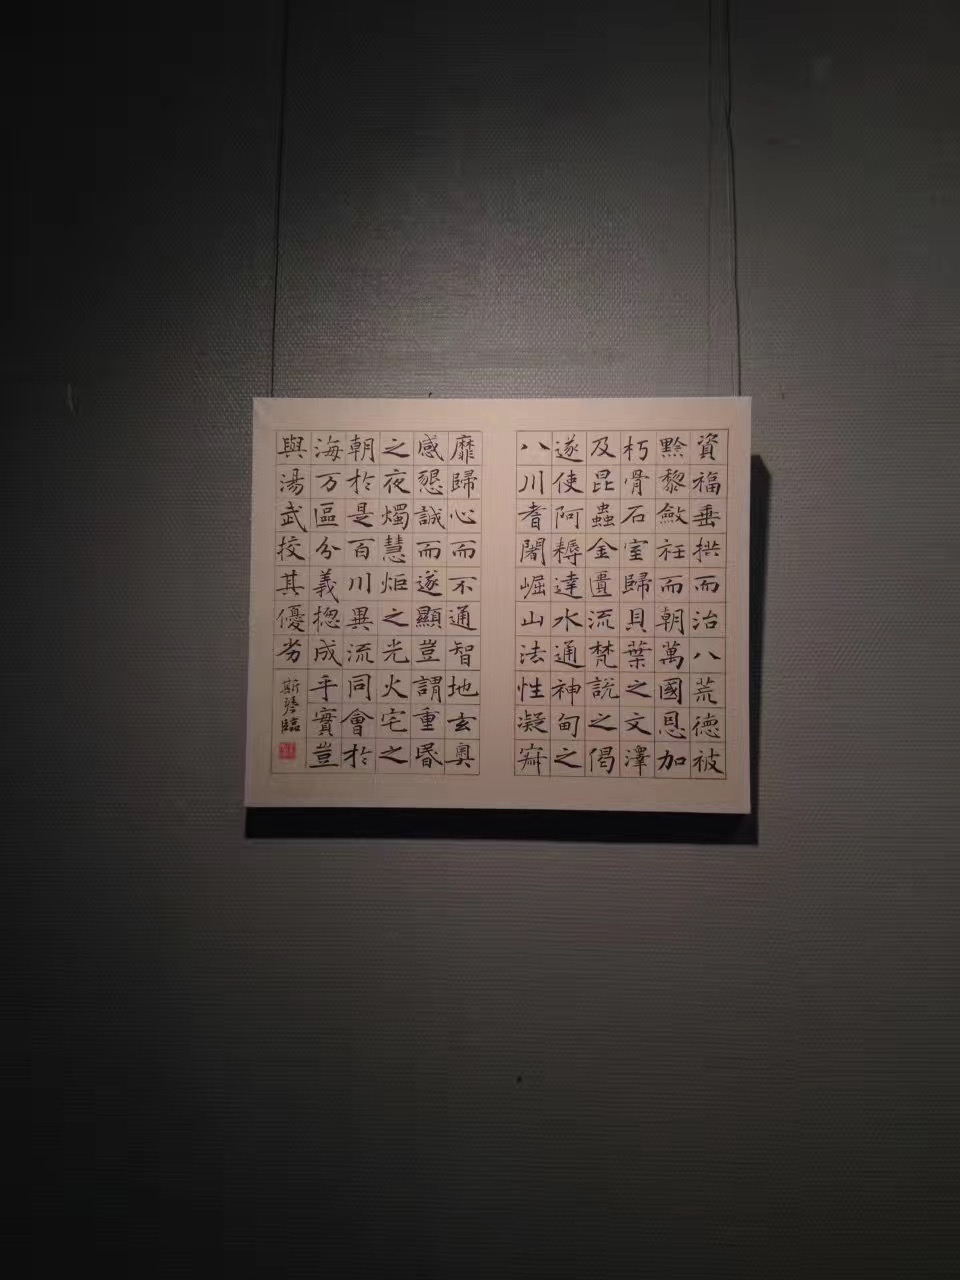 資福垂拱而治八荒德被
黔黎斂衽而朝萬國恩加
朽骨石室歸貝葉之文澤
及昆蟲金匱流梵說之偈
遂使阿耨達水通神甸之
八川耆闍崛山法性凝寂
靡歸心而不通智地玄奧
感懇誠而遂顯豈謂重昏
之夜燭慧炬之光火宅之
朝於是百川異流同會於
海万區分義揔成乎實豈
與湯武挍其優劣
斯琴臨